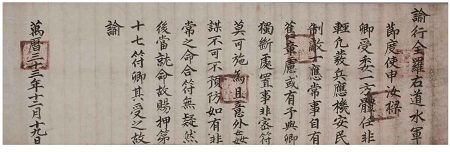 諭行全羅右道水軍
節度使申汝樑
卿受委一方體任非
輕凡發兵應機安民
制敵一應常事自有
舊章慮或有予與卿
獨斷處置事非密符
莫可施爲且意外姦
謀不可不預防如有非
常之命合符無疑然
後當就命故賜押第
十七符卿其受之故
諭
萬曆三十三年十二月十九日